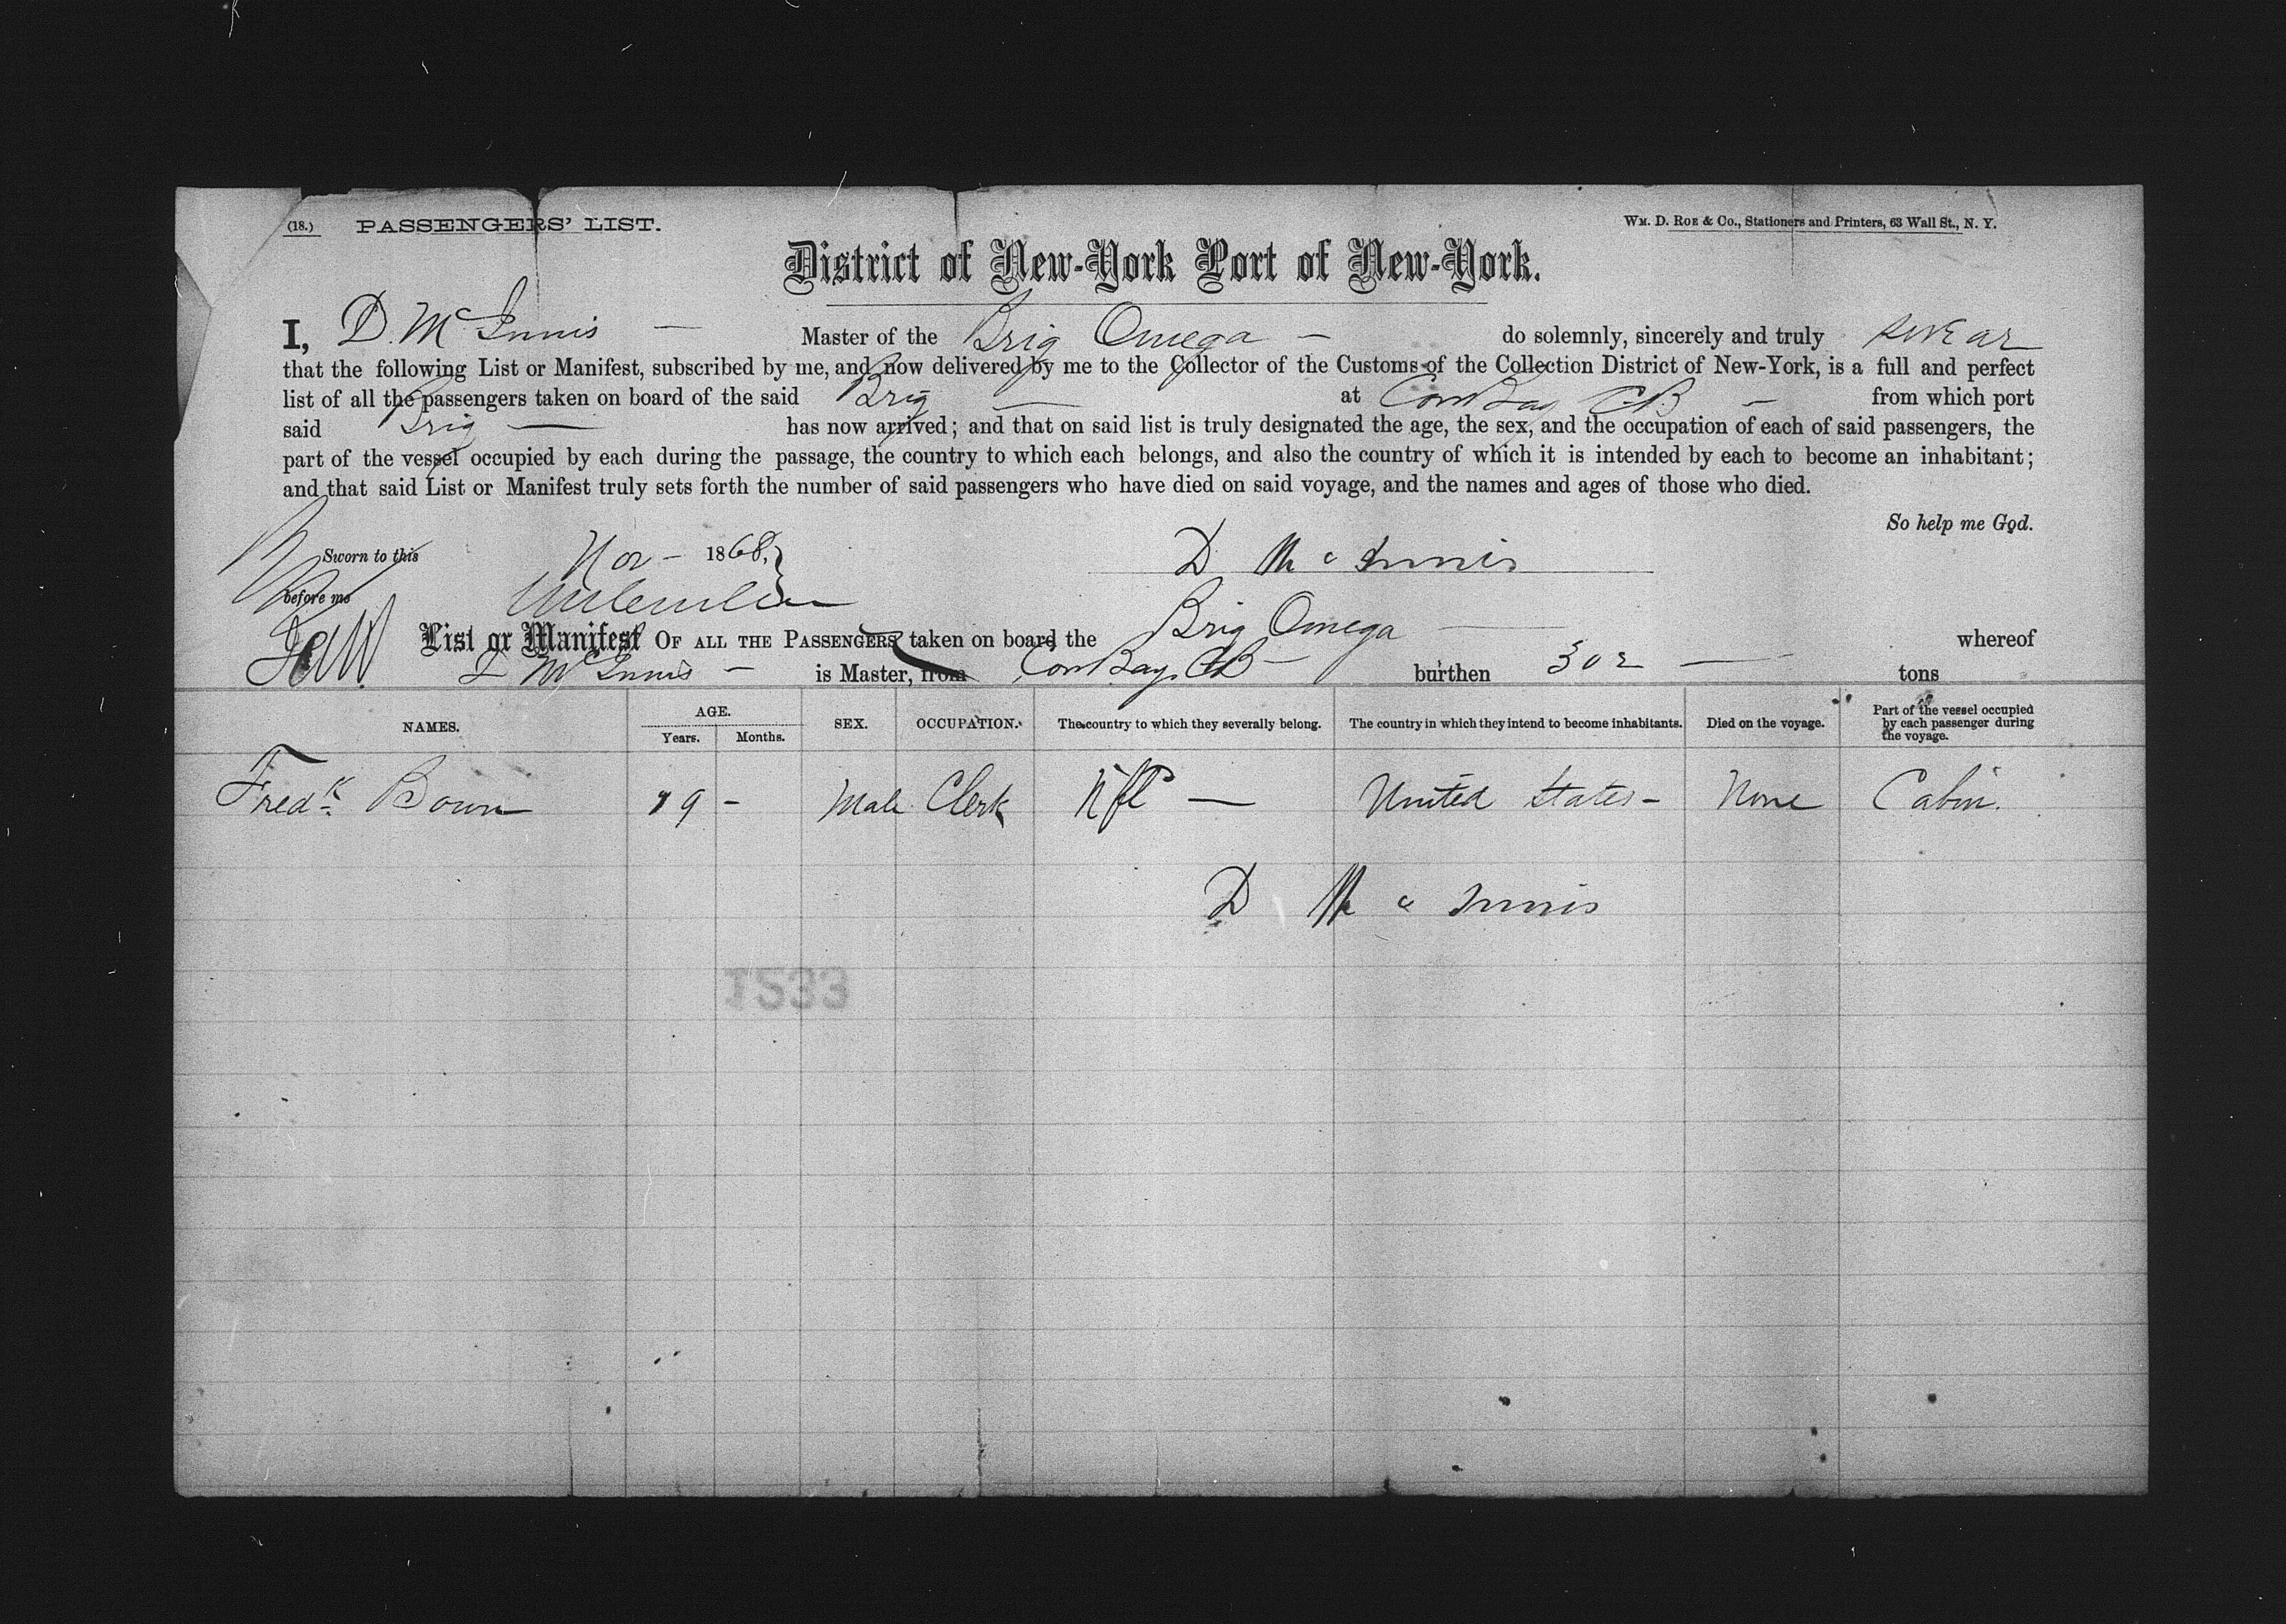 (18.) PASSENGERS' LIST.
WM. D. ROE & CO., Stationers and Printers, 63 Wall St., N. Y.
District of New-York Port of New-York.
I, D. McInnis — Master of the Brig Omega — do solemnly, sincerely and truly swear
that the following List or Manifest, subscribed by me, and now delivered by me to the Collector of the Customs of the Collection District of New-York, is a full and perfect
list of all the passengers taken on board of the said Brig — at Cow Bay CB — from which port
said Brig — has now arrived; and that on said list is truly designated the age, the sex, and the occupation of each of said passengers, the
part of the vessel occupied by each during the passage, the country to which each belongs, and also the country of which it is intended by each to become an inhabitant;
and that said List or Manifest truly sets forth the number of said passengers who have died on said voyage, and the names and ages of those who died.
So help me God.
Sworn to this Nov — 1868,
D McInnis
before me
List or Manifest OF ALL THE PASSENGERS taken on board the Brig Omega — whereof
D McInnis — is Master, from Cow Bay, CB — burthen 302 — tons
NAMES. AGE. Years. Months. SEX. OCCUPATION. The country to which they severally belong. The country in which they intend to become inhabitants. Died on the voyage. Part of the vessel occupied by each passenger during the voyage.
Fredk. Bown 19 - Male Clerk Nfl — United States - None Cabin.
D McInnis
1533